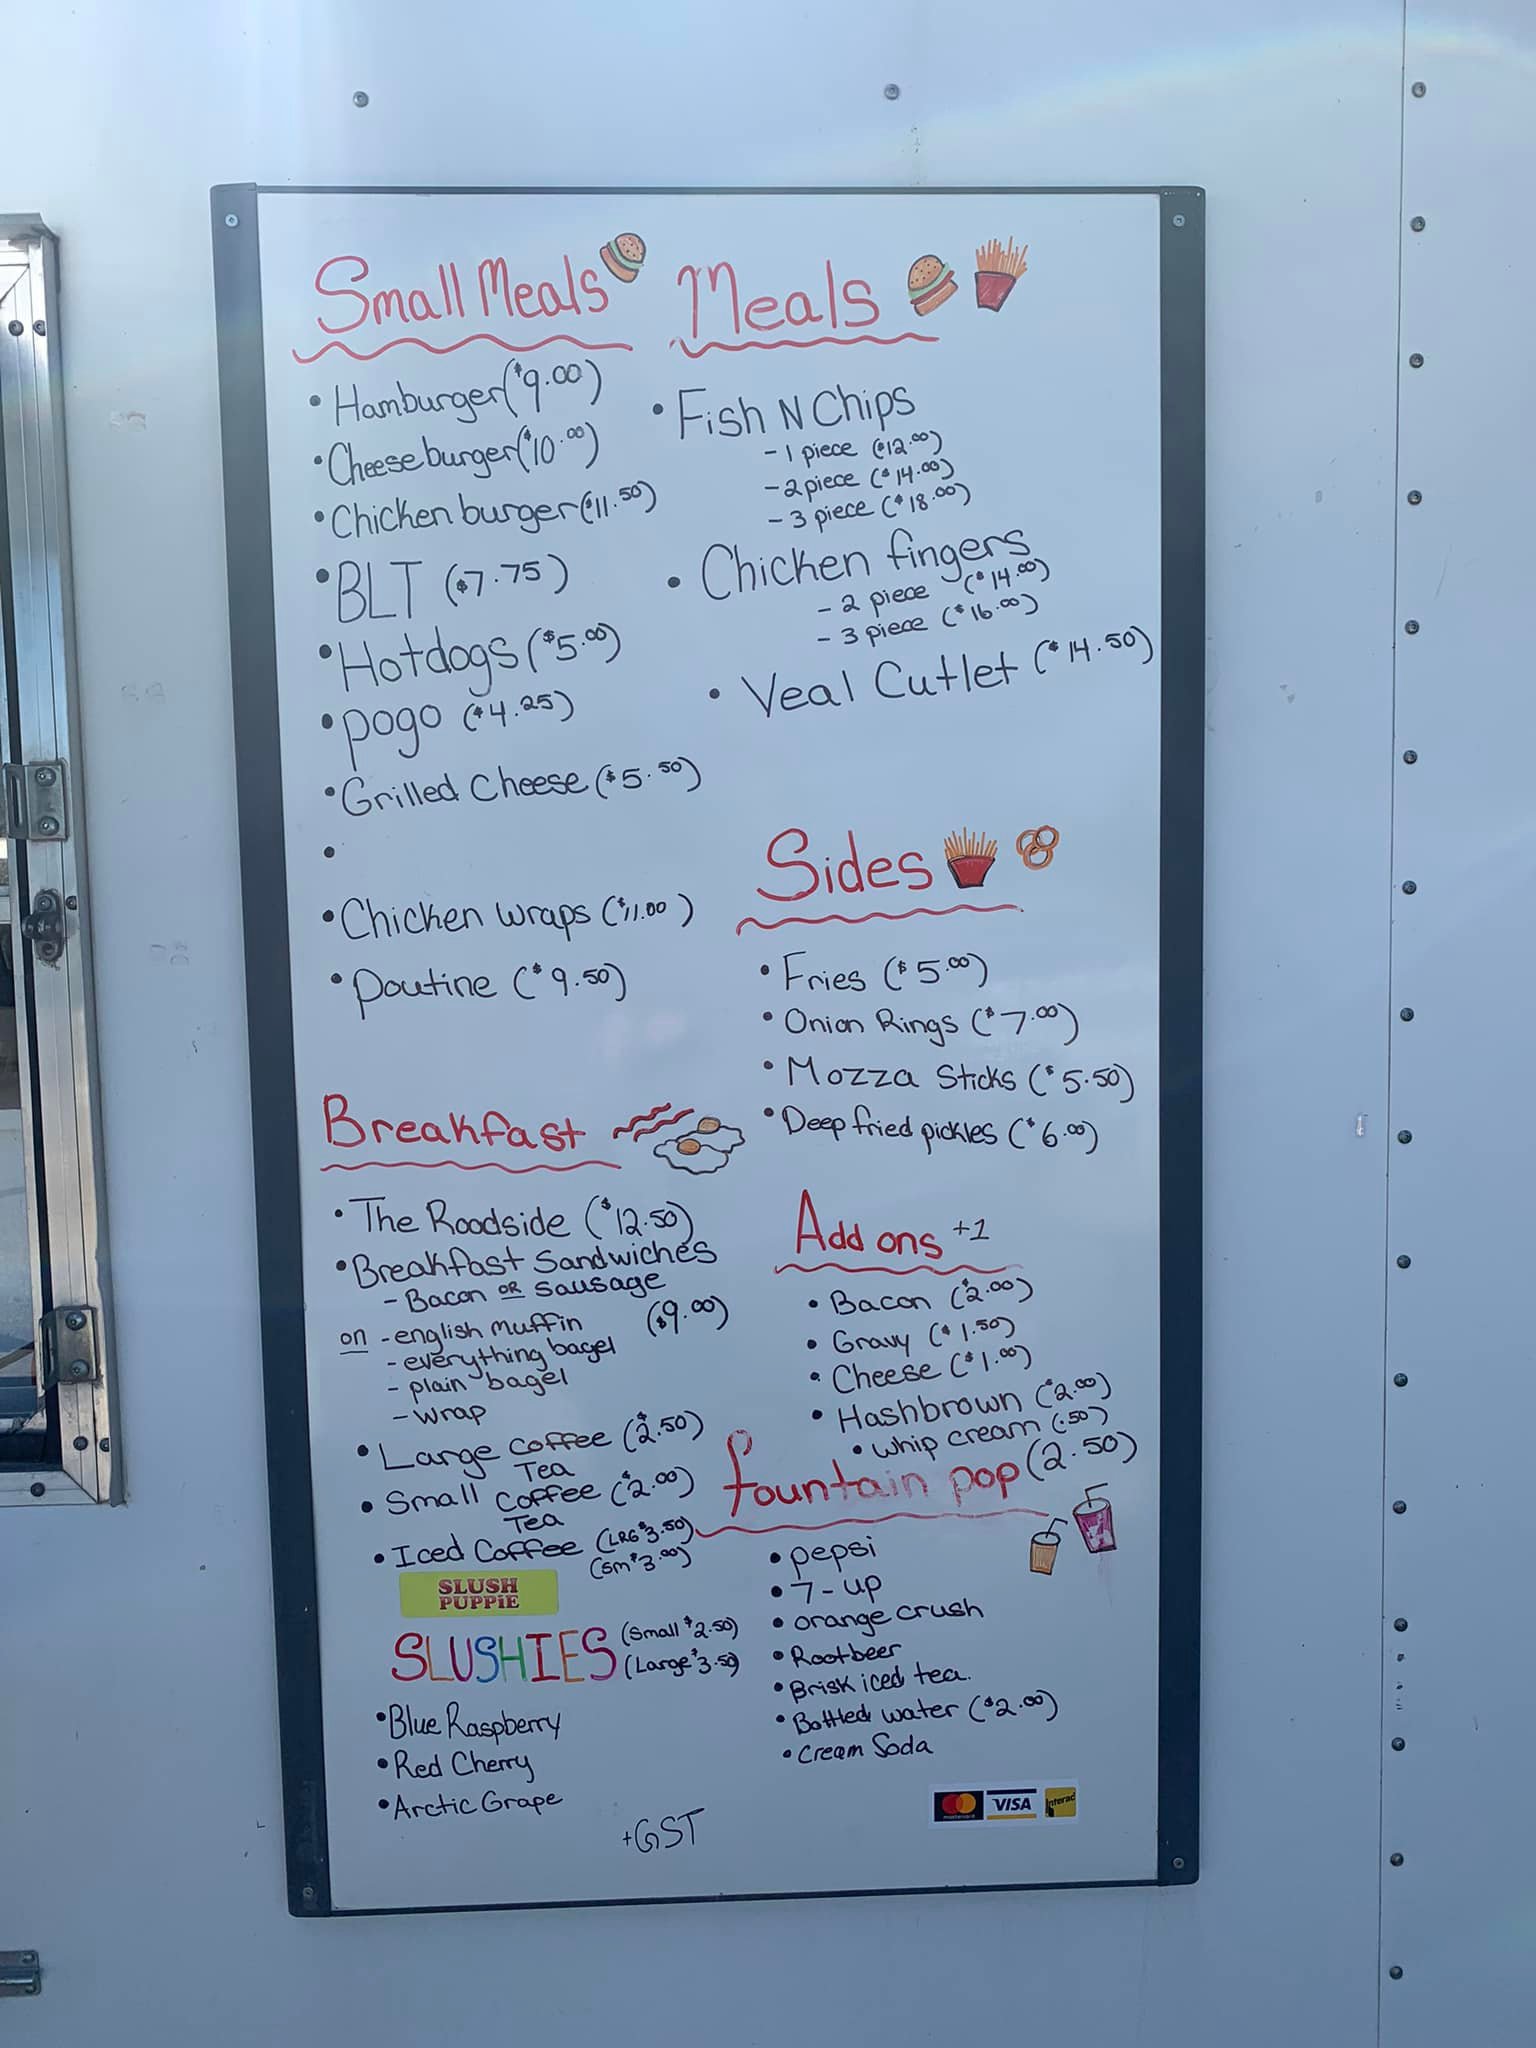 Small Meals
• Hamburger ($9.00)
• Cheeseburger ($10.00)
• Chicken burger ($11.50)
• BLT ($7.75)
• Hotdogs ($5.00)
• pogo ($4.25)
• Grilled Cheese ($5.50)
•
• Chicken wraps ($11.00)
• Poutine ($9.50)
Meals
• Fish N Chips
- 1 piece ($12.00)
- 2 piece ($14.00)
- 3 piece ($18.00)
• Chicken fingers
- 2 piece ($14.00)
- 3 piece ($16.00)
• Veal Cutlet ($14.50)
Sides
• Fries ($5.00)
• Onion Rings ($7.00)
• Mozza Sticks ($5.50)
• Deep fried pickles ($6.00)
Breakfast
• The Roadside ($12.50)
• Breakfast Sandwiches
- Bacon OR Sausage
on - english muffin ($9.00)
- everything bagel
- plain bagel
- wrap
• Large Coffee ($2.50)
Tea
• Small Coffee ($2.00)
Tea
• Iced Coffee (LRG $3.50)
(Sm $3.00)
Add ons +1
• Bacon ($2.00)
• Gravy ($1.50)
• Cheese ($1.00)
• Hashbrown ($2.00)
• whip cream (.50)
fountain pop (2.50)
• pepsi
• 7-up
• orange crush
• Rootbeer
• Brisk iced tea.
• Bottled water ($2.00)
• Cream Soda
SLUSH
PUPPiE
SLUSHIES (Small $2.50)
(Large $3.50)
• Blue Raspberry
• Red Cherry
• Arctic Grape
+GST
mastercard VISA Interac